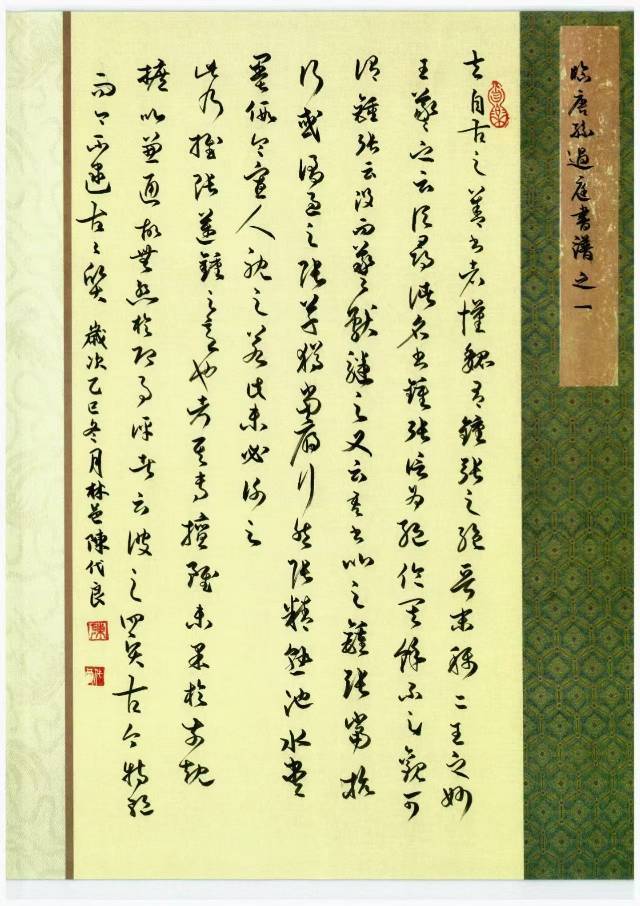 臨唐孫過庭書譜之一
夫自古之善書者漢魏有鍾張之絕晉末稱二王之妙
王羲之云頃尋諸名書鍾張信為絕倫其餘不足觀可
謂鍾張云沒而羲獻繼之又云吾書比之鍾張當抗
行或謂過之張草猶當雁行然張精熟池水盡
墨假令寡人耽之若此未必謝之
此乃推張邁鍾之意也考其專擅雖未果於前規
摭以兼通故無慚於即事評者云彼之四賢古今特絕
而今不逮古々質 歲次乙巳冬月林邑陳代良